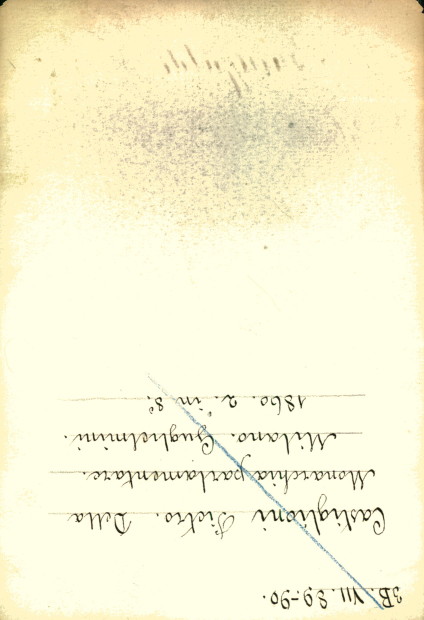 3B. VII. 89-90.
Castiglioni Pietro. Della
Monarchia parlamentare.
Milano. Guglielmini.
1860. 2. in 8.°